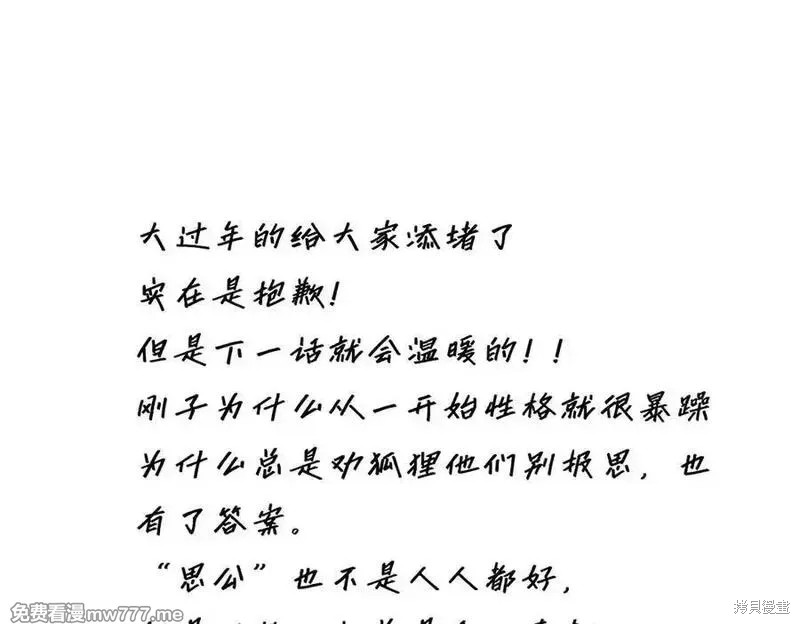 大过年的给大家添堵了
实在是抱歉!
但是下一话就会温暖的!!
刚子为什么从一开始性格就很暴躁
为什么总是劝狐狸他们别报思,也
有了答案。
“思公”也不是人人都好,
免费看漫mw777.me
拷貝漫畫